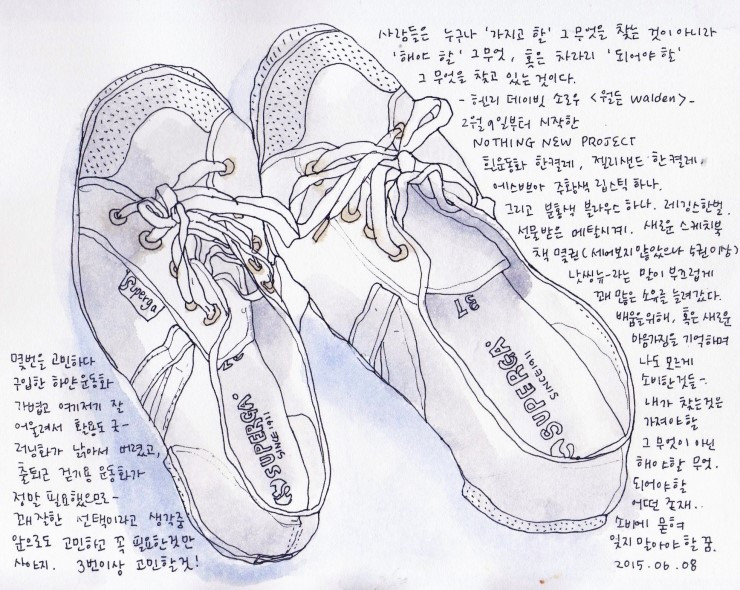 사람들은 누구나 '가지고 할' 그 무엇을 찾는 것이 아니라
'해야 할' 그 무엇, 혹은 차라리 '되어야 할'
그 무엇을 찾고 있는 것이다.
- 헨리 데이빗 소로우 <월든 walden> -
2월 9일부터 시작한
NOTHING NEW PROJECT
흰운동화 한켤레, 젤리샌드 한켤레,
에스쁘아 주황색 립스틱 하나.
그리고 분홍색 블라우스 하나. 레깅스한벌.
선물받은 메탈시계. 새로운 스케치북
책 몇권 (세어보지 않았으나 5권이상)
낫씽뉴-라는 말이 부끄럽게
꽤 많은 소유를 늘려갔다.
배움을위해, 혹은 새로운
마음가짐을 기억하며
나도 모르게
소비한것들-
내가 찾는것은
가져야할
그 무엇이 아닌
해야할 무엇.
되어야할
어떤 존재..
소비에 묻혀
잊지 말아야 할 꿈.
2015.06.08
몇번을 고민하다
구입한 하얀운동화
가볍고 여기저기 잘
어울려서 활용도 굿-
러닝화가 낡아서 버렸고,
출퇴근 걷기용 운동화가
정말 필요했으므로-
꽤 잘한 선택이라고 생각중
앞으로도 고민하고 꼭 필요한것만
사야지. 3번이상 고민할것!
Superga
SUPERGA
SINCE 1911
SUPERGA
SINCE 1911